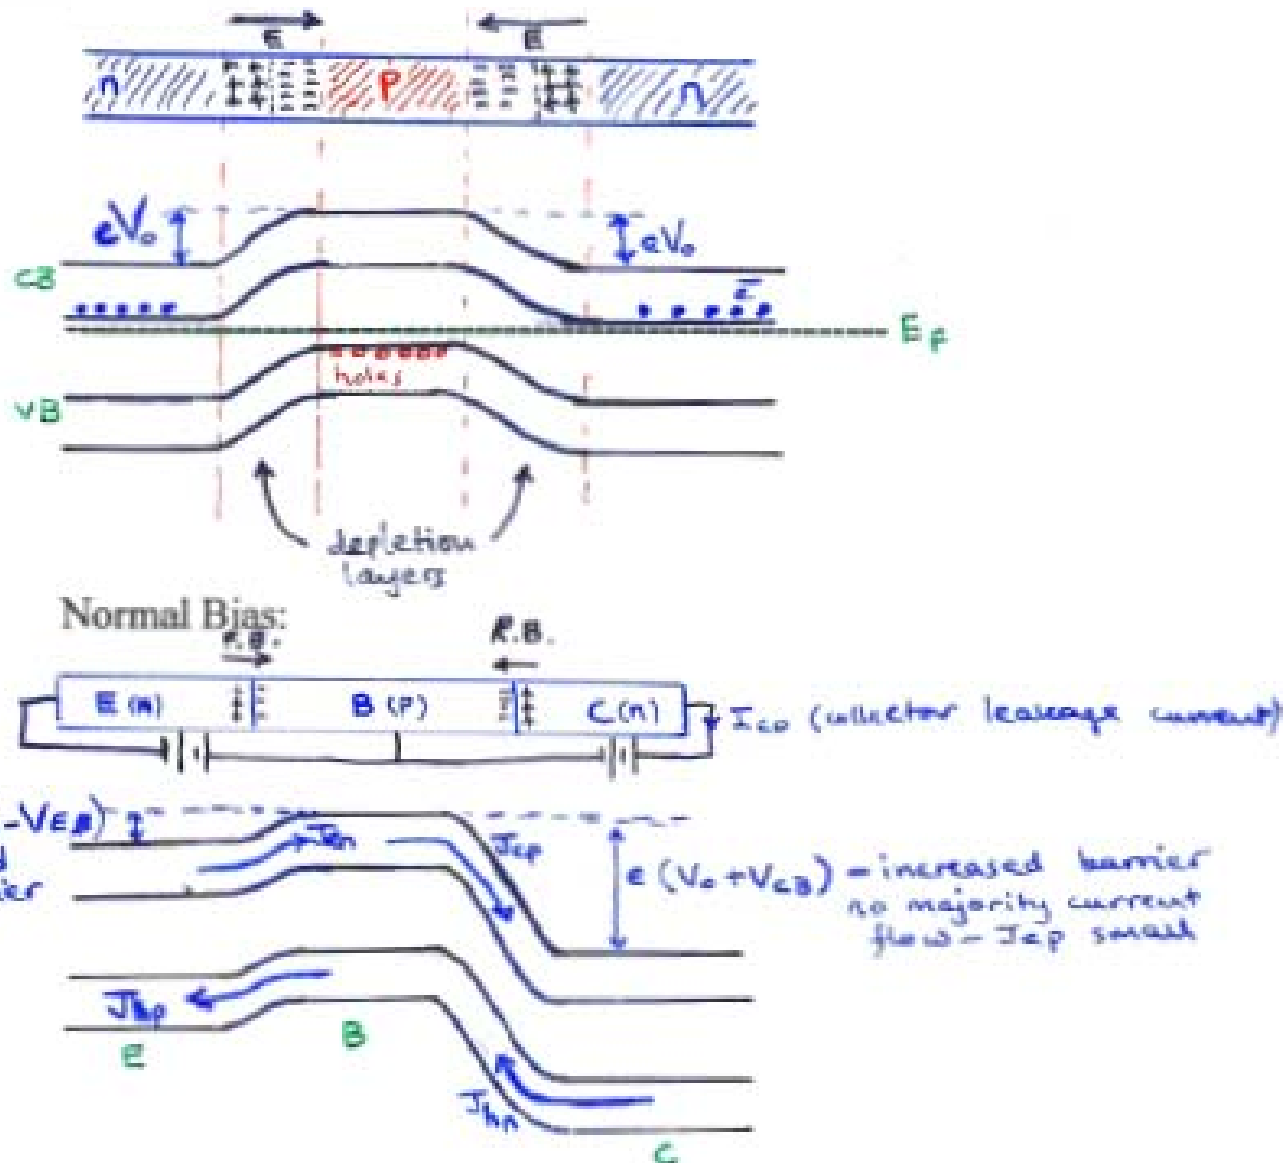 E E
n P n
eV₀ eV₀
CB
e⁻
E_F
holes
VB
depletion
layers
Normal Bias:
F.B. R.B.
E (n) B (p) C (n) I_CO (collector leakage current)
-V_EB)
J_en J_ep
e (V₀ + V_CB) - increased barrier
no majority current
flow - J_ep small
J_hp
E B
J_hn
C